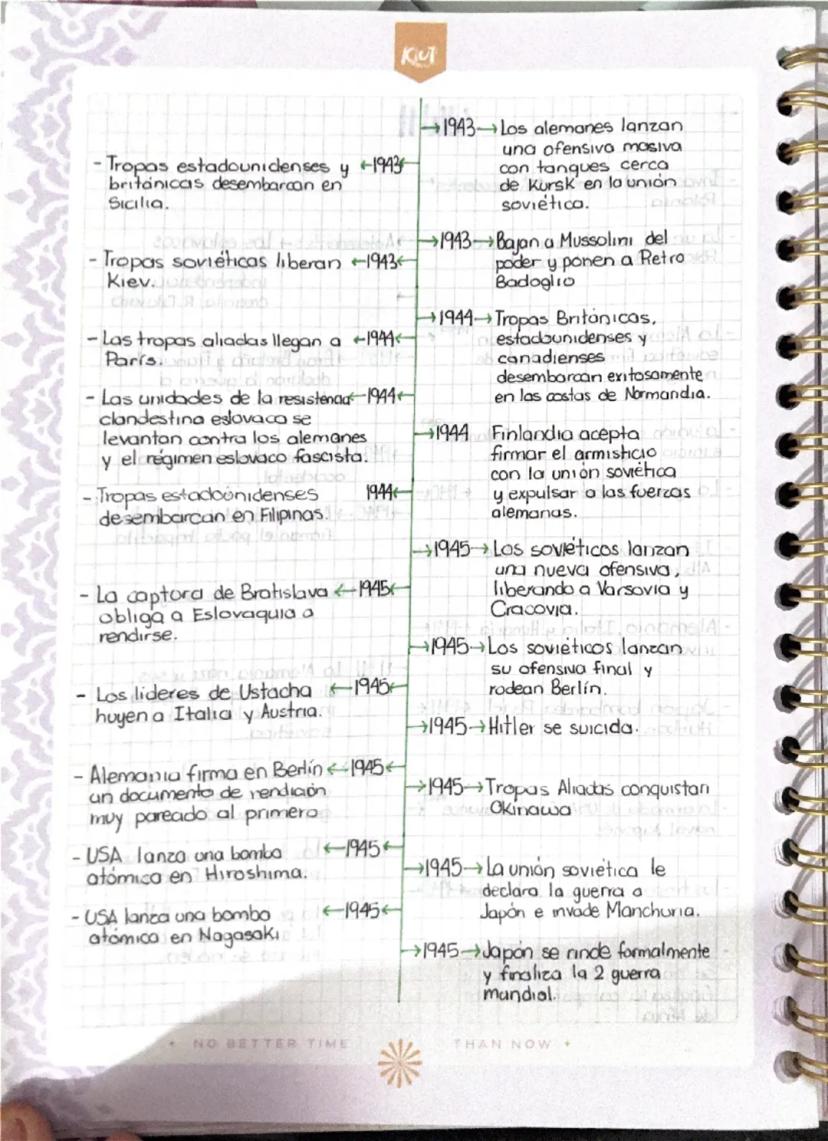 KIUT
→1943→Los alemanes lanzan
una ofensiva masiva
con tanques cerca
de Kursk en la unión
soviética.
- Tropas estadounidenses y ←1943←
británicas desembarcan en
Sicilia.
→1943→Bajan a Mussolini del
poder y ponen a Pietro
Badoglio
- Tropas soviéticas liberan ←1943←
Kiev.
→1944→Tropas Británicas,
estadounidenses y
canadienses
desembarcan exitosamente
en las costas de Normandia.
- Las tropas aliadas llegan a ←1944←
París.
- Las unidades de la resistencia ←1944←
clandestina eslovaca se
levantan contra los alemanes
y el régimen eslovaco fascista.
→1944 Finlandia acepta
firmar el armisticio
con la unión soviética
y expulsar a las fuerzas
alemanas.
- Tropas estadounidenses 1944←
desembarcan en Filipinas.
→1945→Los soviéticos lanzan
una nueva ofensiva,
liberando a Varsovia y
Cracovia.
- La captura de Bratislava ←1945←
obliga a Eslovaquia a
rendirse.
→1945→Los soviéticos lanzan
su ofensiva final y
rodean Berlín.
- Los líderes de Ustacha ←1945←
huyen a Italia y Austria.
→1945→Hitler se suicida.
- Alemania firma en Berlín ←1945←
un documento de rendición
muy pareado al primero
→1945→Tropas Aliadas conquistan
Okinawa
- USA lanza una bomba ←1945←
atómica en Hiroshima.
→1945→La unión soviética le
declara la guerra a
Japón e invade Manchuria.
- USA lanza una bomba ←1945←
atómica en Nagasaki
→1945→Japón se rinde formalmente
y finaliza la 2 guerra
mundial.
NO BETTER TIME THAN NOW